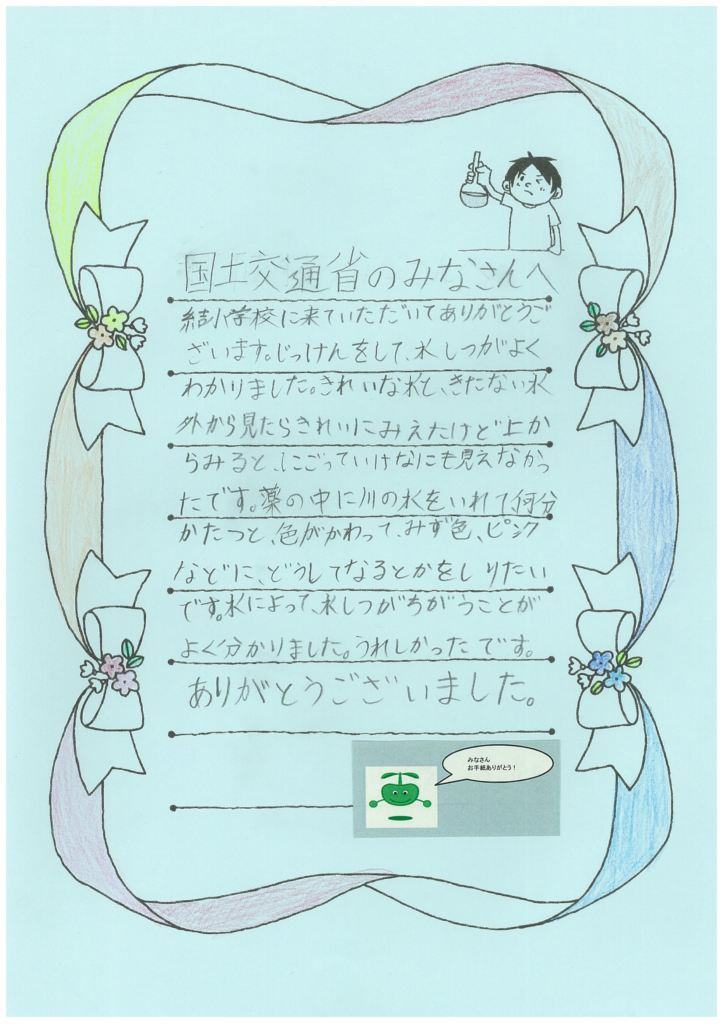 国土交通省のみなさんへ
結小学校に来ていただいてありがとうご
ざいます。じっけんをして、水しつがよく
わかりました。きれいな水と、きたない水
外から見たらきれいにみえたけど上か
らみると、にごっていけなにも見えなかっ
たです。薬の中に川の水をいれて何分
かたつと、色がかわって、みず色、ピンク
などに、どうしてなるとかをしりたい
です。水によって、水しつがちがうことが
よく分かりました。うれしかったです。
ありがとうございました。
みなさん
お手紙ありがとう！